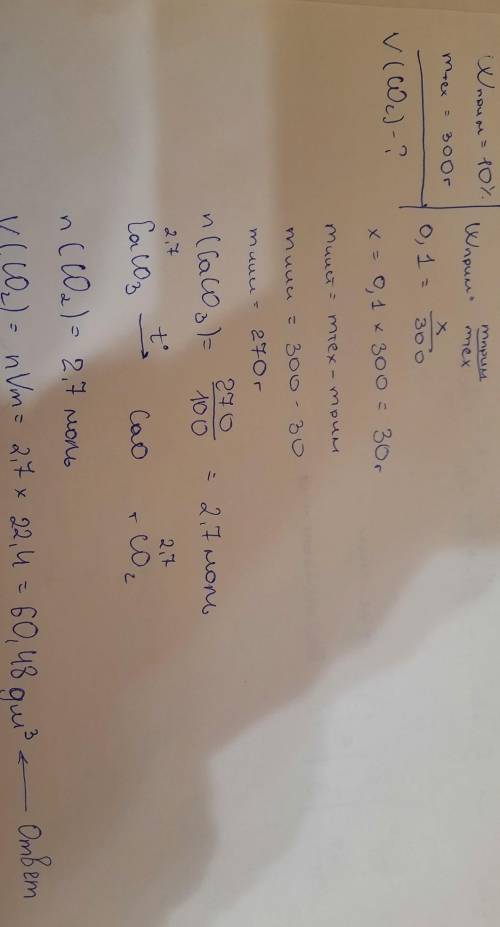 Wприм = 10%
mтех = 300г
V(CO₂) - ?
Wприм = mприм / mтех
0,1 = x / 300
x = 0,1 × 300 = 30г
= mтех - mприм
= 300 - 30
= 270г
n(CaCO₃) = 270 / 100 = 2,7 моль
2,7 2,7
CaCO₃ t°→ CaO + CO₂
n(CO₂) = 2,7 моль
V(CO₂) = nVm = 2,7 × 22,4 = 60,48 дм³ ← Ответ